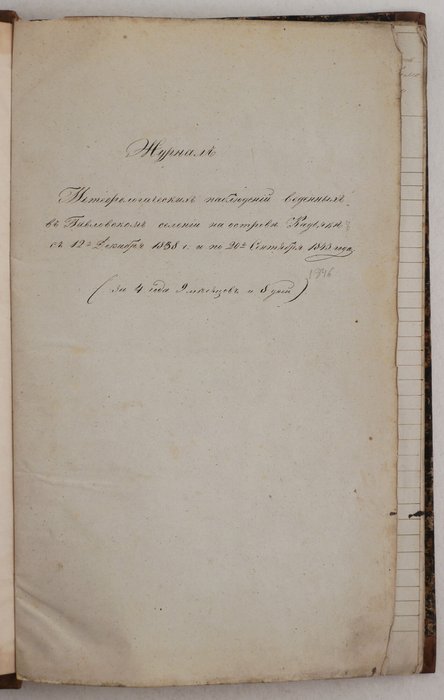 Журналъ
Метеорологическихъ наблюденій веденныхъ
въ Павловскомъ селеніи на островѣ Кадьякѣ
съ 12го Декабря 1838 г. и по 20е Сентября 1843 года
1846
(за 4 года 9 мѣсяцовъ и 8 дней)